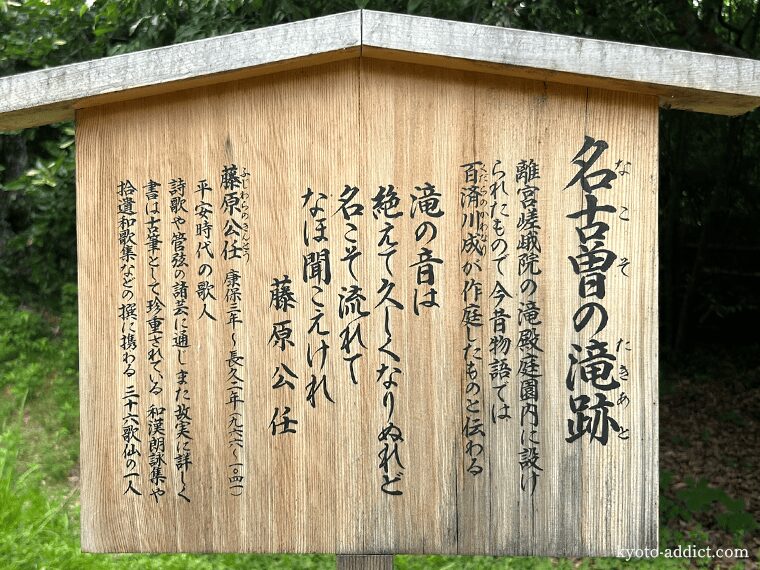 名古曽の滝跡
なこそ たきあと
離宮嵯峨院の滝殿庭園内に設け
られたもので今昔物語では
百済川成が作庭したものと伝わる
くだらのかわなり
滝の音は
絶えて久しくなりぬれど
名こそ流れて
なほ聞こえけれ
藤原公任
藤原公任 康保三年~長久二年(九六六~一〇四一)
ふじわらのきんとう
平安時代の歌人
詩歌や管弦の諸芸に通じ また故実に詳しく
書は古筆として珍重されている 和漢朗詠集や
拾遺和歌集などの撰に携わる 三十六歌仙の一人
kyoto-addict.com